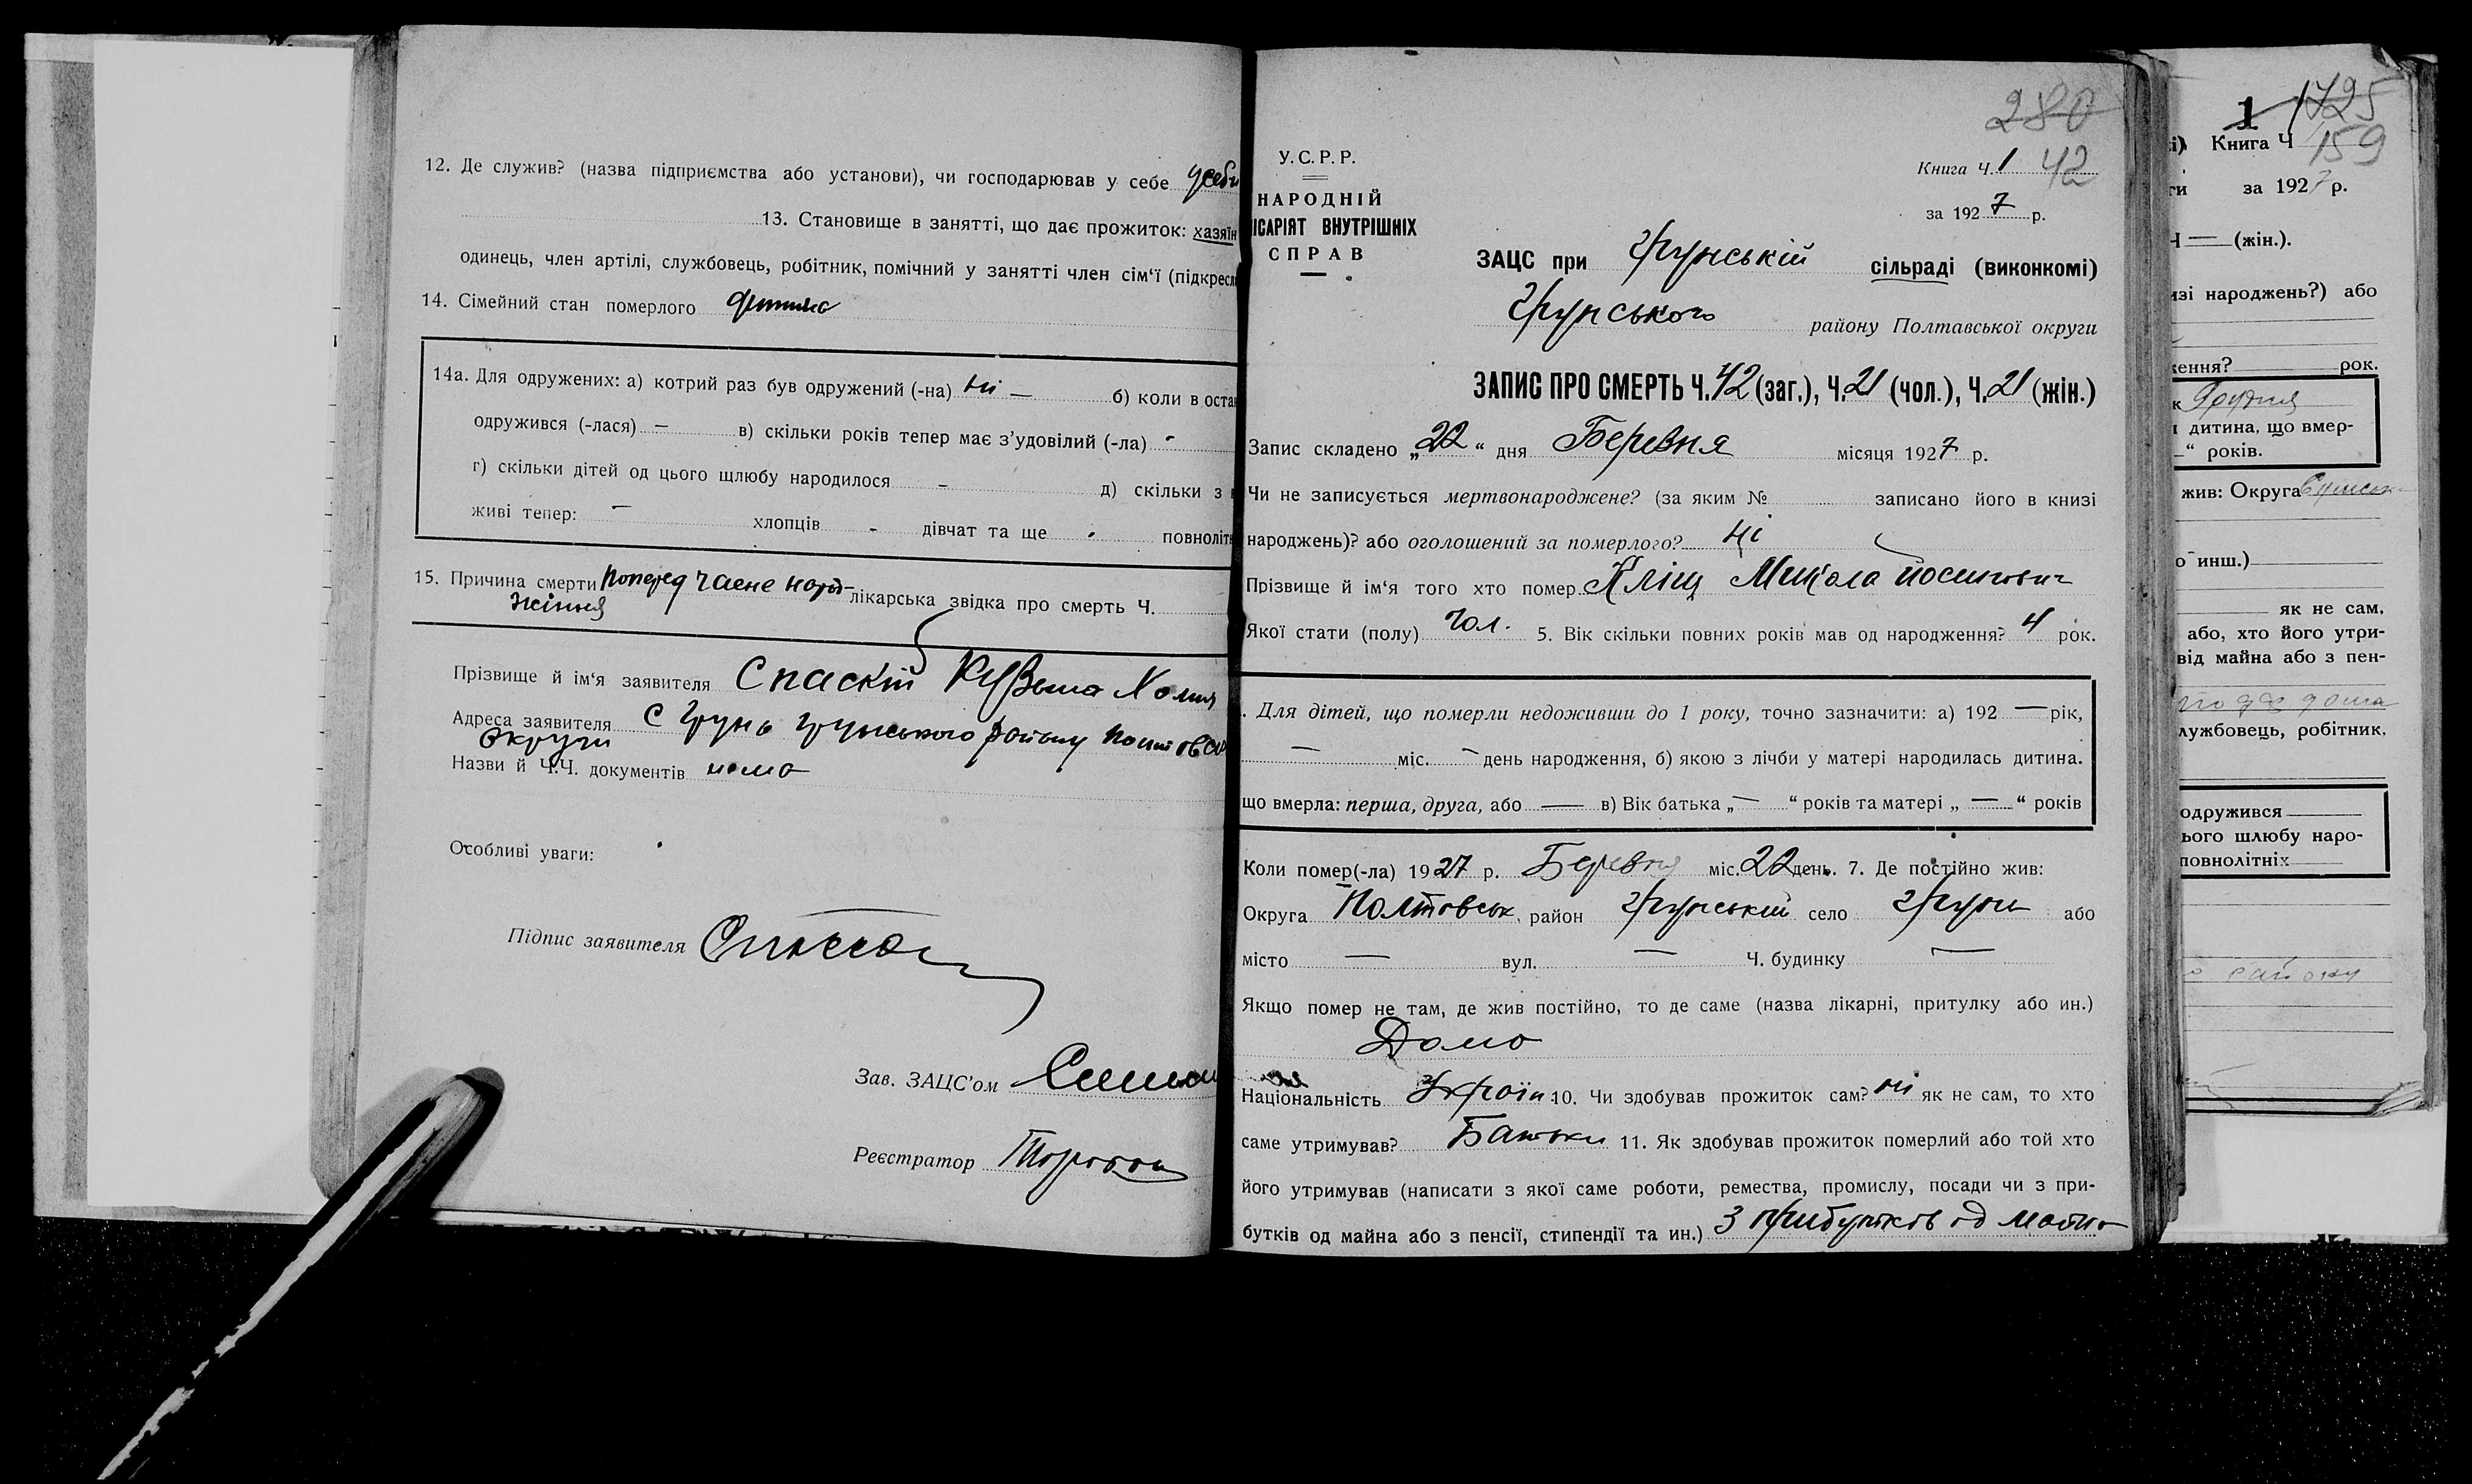 12. Де служив? (назва підприємства або установи), чи господарював у себе у себи
13. Становище в занятті, що дає прожиток: хазяїн
одинець, член артілі, службовець, робітник, помічний у занятті член сім'ї (підкресл
14. Сімейний стан померлого дитина
14а. Для одружених: а) котрий раз був одружений (-на) ні — б) коли в остан
одружився (-лася) — в) скільки років тепер має з'удовілий (-ла)
г) скільки дітей од цього шлюбу народилося – д) скільки з
живі тепер: — хлопців - дівчат та ще повноліт
15. Причина смерти лікарська звідка про смерть Ч.
Прізвище й ім'я заявителя Спаскій
Адреса заявителя С Грунь Грунського району
Округи
Назви й Ч.Ч. документів нема
Особливі уваги:
Підпис заявителя
Зав. ЗАЦС'ом
Реєстратор
280
У.С.Р.Р.
Книга Ч. 1 42
НАРОДНІЙ
ІСАРІЯТ ВНУТРІШНІХ
СПРАВ
за 1927 р.
ЗАЦС при Грунській сільраді (виконкомі)
Грунського району Полтавської округи
ЗАПИС ПРО СМЕРТЬ Ч. 42 (заг.), Ч. 21 (чол.), Ч. 21 (жін.)
Запис складено „22“ дня Березня місяця 1927 р.
Чи не записується мертвонароджене? (за яким № записано його в книзі
народжень)? або оголошений за померлого? Ні
Прізвище й ім'я того хто помер Кліщ Микола Йосипович
Якої стати (полу) Чол. 5. Вік скільки повних років мав од народження? 4 рок.
. Для дітей, що померли недоживши до 1 року, точно зазначити: а) 192 — рік,
— міс. — день народження, б) якою з лічби у матері народилась дитина.
що вмерла: перша, друга, або — в) Вік батька „—“ років та матері „—“ років
Коли помер(-ла) 1927 р. Березня міс. 22 день. 7. Де постійно жив:
Округа Полтовськ. район Грунський село Грунь або
місто — вул. — Ч. будинку —
Якщо помер не там, де жив постійно, то де саме (назва лікарні, притулку або ин.)
Дома
Національність Україн 10. Чи здобував прожиток сам? ні як не сам, то хто
саме утримував? Батьки 11. Як здобував прожиток померлий або той хто
його утримував (написати з якої саме роботи, ремества, промислу, посади чи з при-
бутків од майна або з пенсії, стипендії та ин.) З прибутків од майна
1 1725
Книга Ч 159
за 1927 р.
Ч — (жін.).
ізі народжень?) або
ження? рок.
дитина, що вмер-
—“ років.
жив: Округа
о инш.)
як не сам,
або, хто його утри-
від майна або з пен-
лужбовець, робітник,
одружився
ього шлюбу наро-
повнолітніх
району